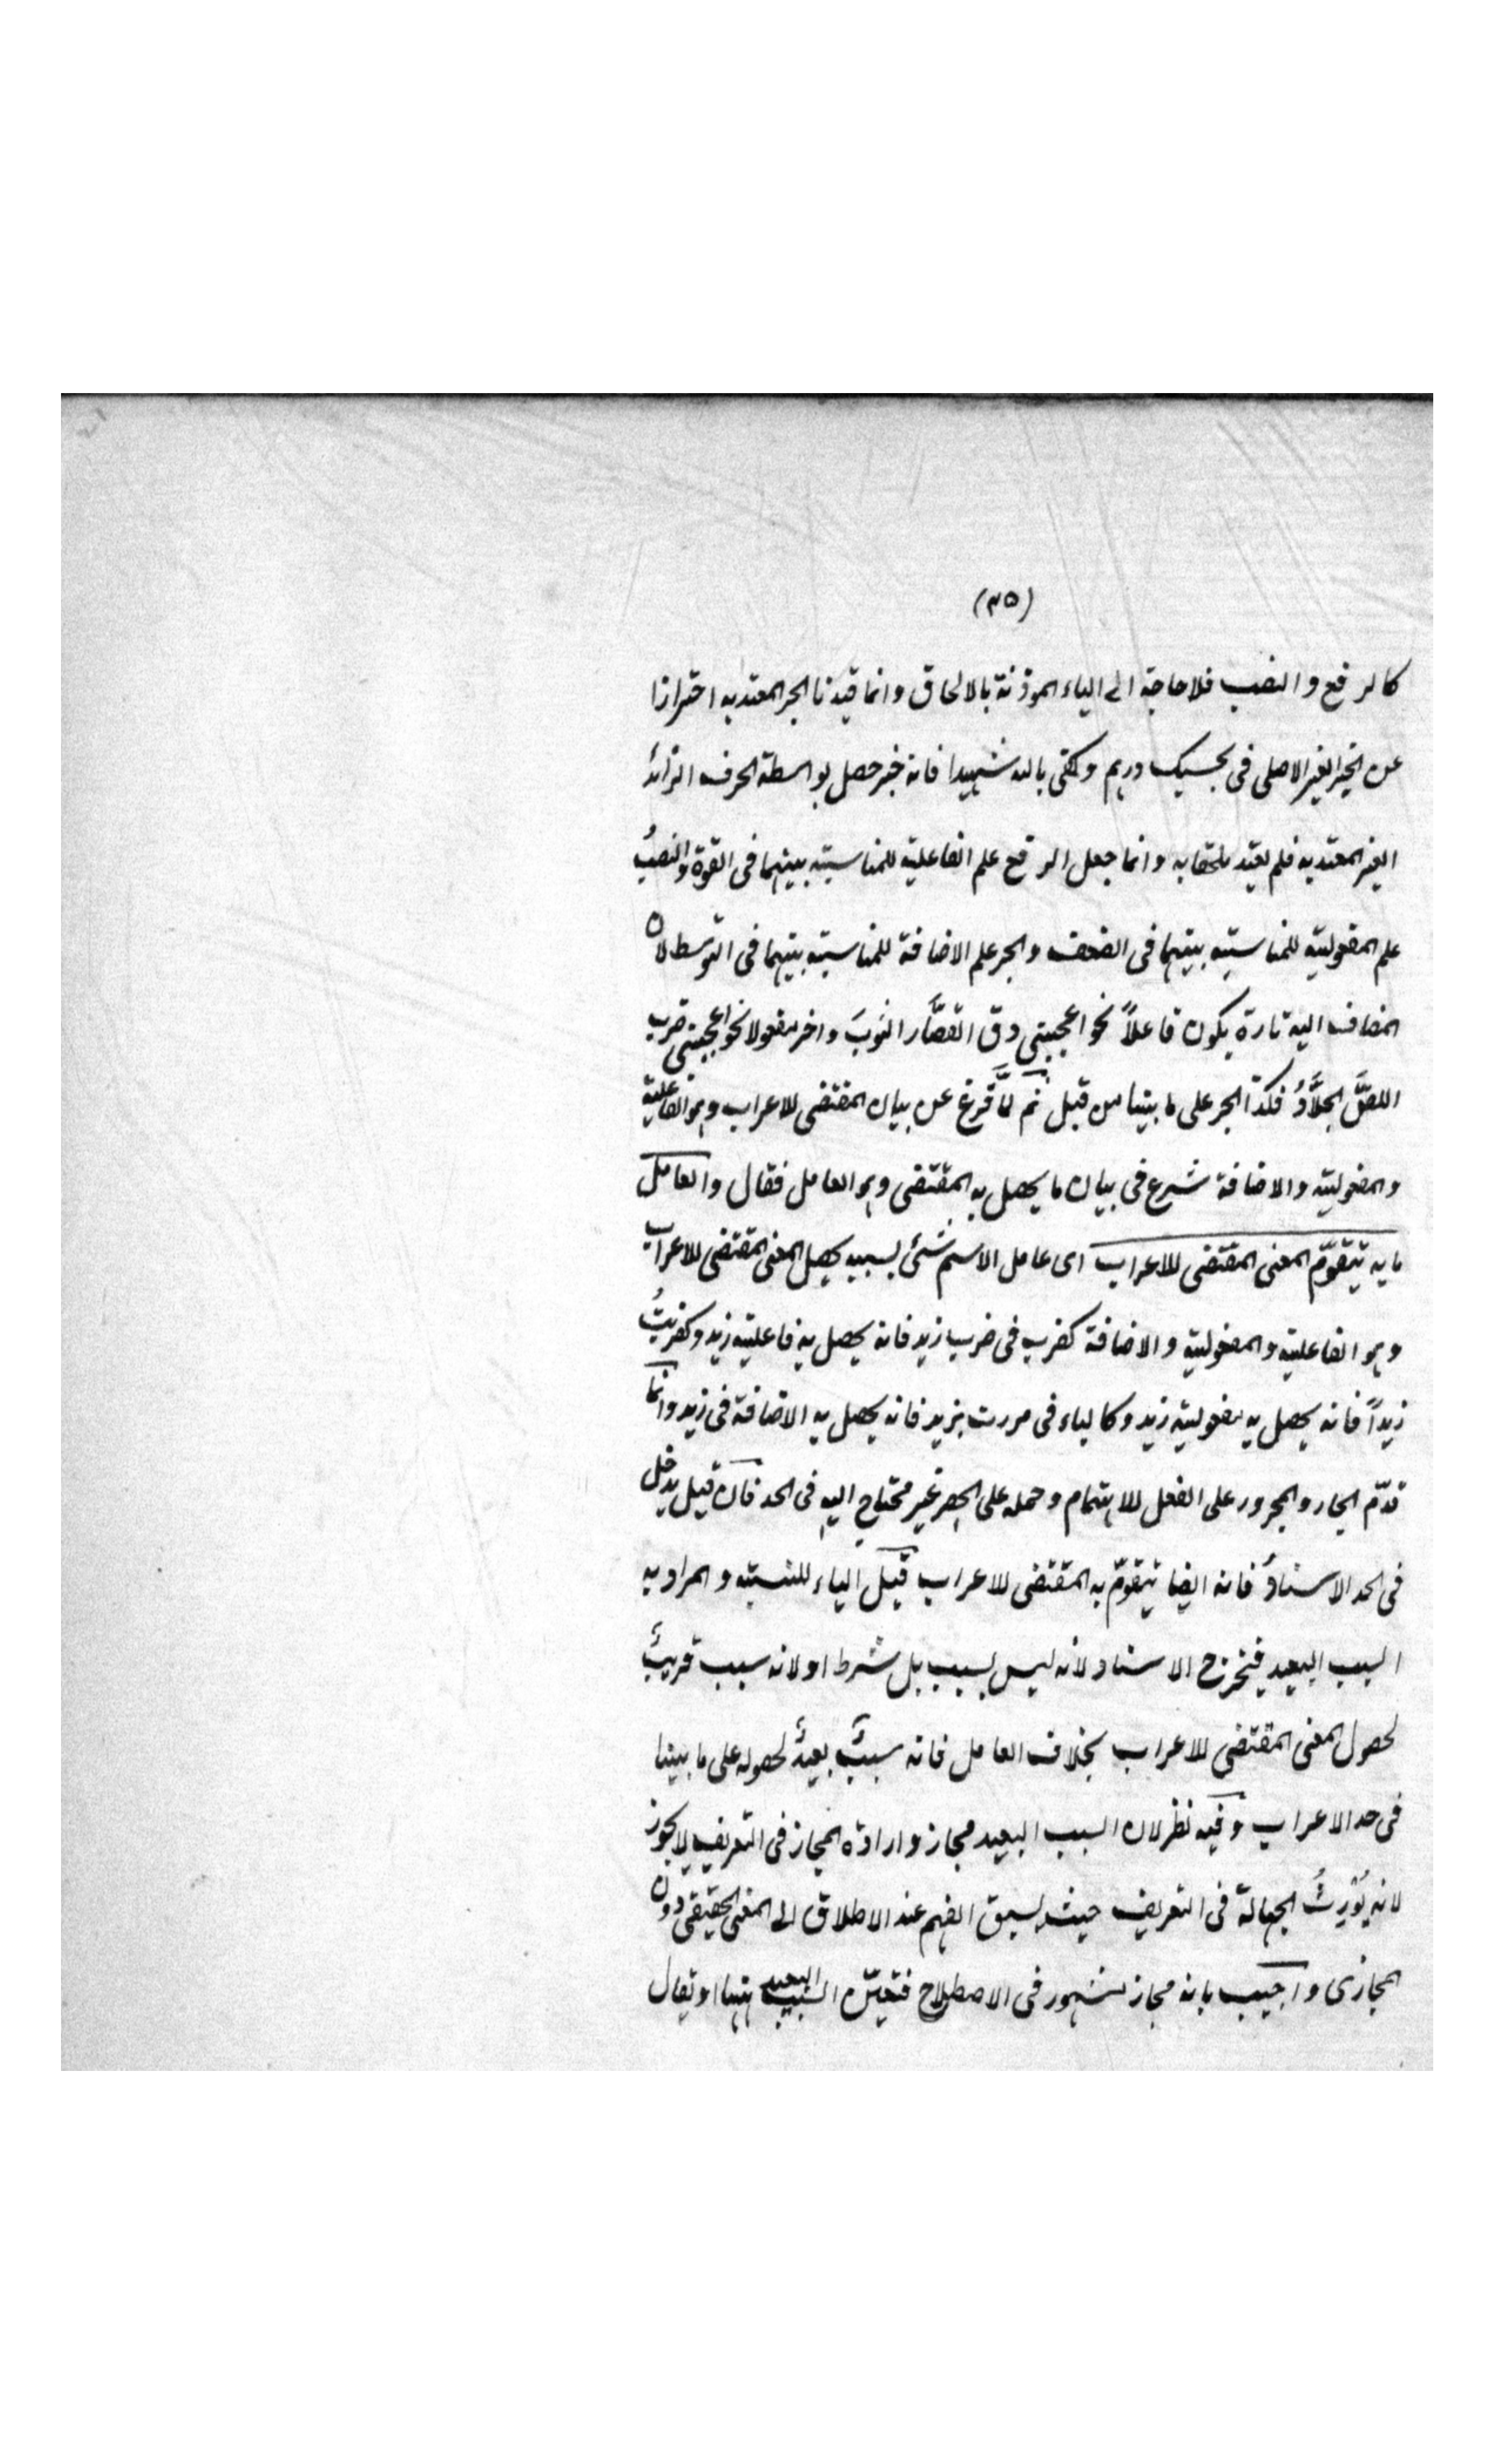 (٣٥)
كالرفع والنصب فلا حاجة الى الياء الموذنة بالالحاق وانما قيدنا الجر المعتد به احترازا
عن الخبر الغير الاصلى فى بحسبك درهم وكفى بالله شهيدا فانه خبر حصل بواسطة الحرف الزائد
الغير المعتد به فلم يعتد ملحقا به وانما جعل الرفع علم الفاعلية للمناسبة بينهما فى القوة والنصبُ
علم المفعولية للمناسبة بينهما فى الضعف والجر علم الاضافة للمناسبة بينهما فى التوسط لان
المضاف اليه تارة يكون فاعلاً نحو اعجبنى دق القصّار الثوبَ واخر مفعولا نحو اعجبنى ضرب
اللصَّ الجلَّادُ فكذا الجر على ما بينا من قبل ثم لمَّا فرغ عن بيان المقتضى للاعراب وهو الفاعلية
والمفعولية والاضافة شرع فى بيان ما يحصل به المقتضى وهو العامل فقال والعامل
ما به يتقوّم المعنى المقتضى للاعراب اى عامل الاسم شئ بسببه يحصل المعنى المقتضى للاعراب
وهو الفاعلية والمفعولية والاضافة كضرب فى ضرب زيد فانه يحصل به فاعلية زيد وكضربتُ
زيداً فانه يحصل به مفعولية زيد وكالباء فى مررت بزيد فانه يحصل به الاضافة فى زيد وانما
قدّم الجار والمجرور على الفعل للاهتمام وحمله على الحصر غير محتاج اليه فى الحد فان قيل يدخل
فى الحد الاسنادُ فانه ايضا يتقوّم به المقتضى للاعراب قيل الياء للنسبته والمراد به
السبب البعيد فيخرج الاسناد لأنه ليس بسبب بل شرط او لانه سبب قريبٌ
لحصول المعنى المقتضى للاعراب بخلاف العامل فانه سببٌ بعيدٌ لحصوله على ما بينا
فى حد الاعراب وفيه نظر لان السبب البعيد مجاز وارادة المجاز فى التعريف لا يجوز
لانه يُوْرِثُ الجهالة فى التعريف حيث يسبق الفهم عند الاطلاق الى المعنى الحقيقى دون
المجازى واجيب بانه مجاز مشهور فى الاصطلاح فتعيّن السبب البعيد ههنا او يقال